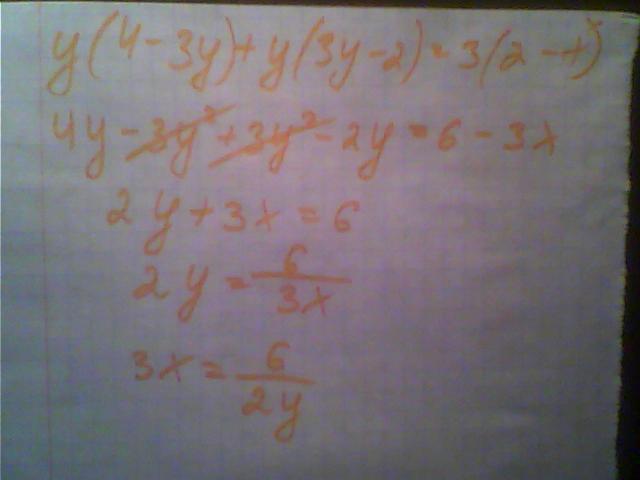 y(4-3y)+y(3y-2)=3(2-x)
4y-3y²+3y²-2y=6-3x
2y+3x=6
2y=6/3x
3x=6/2y